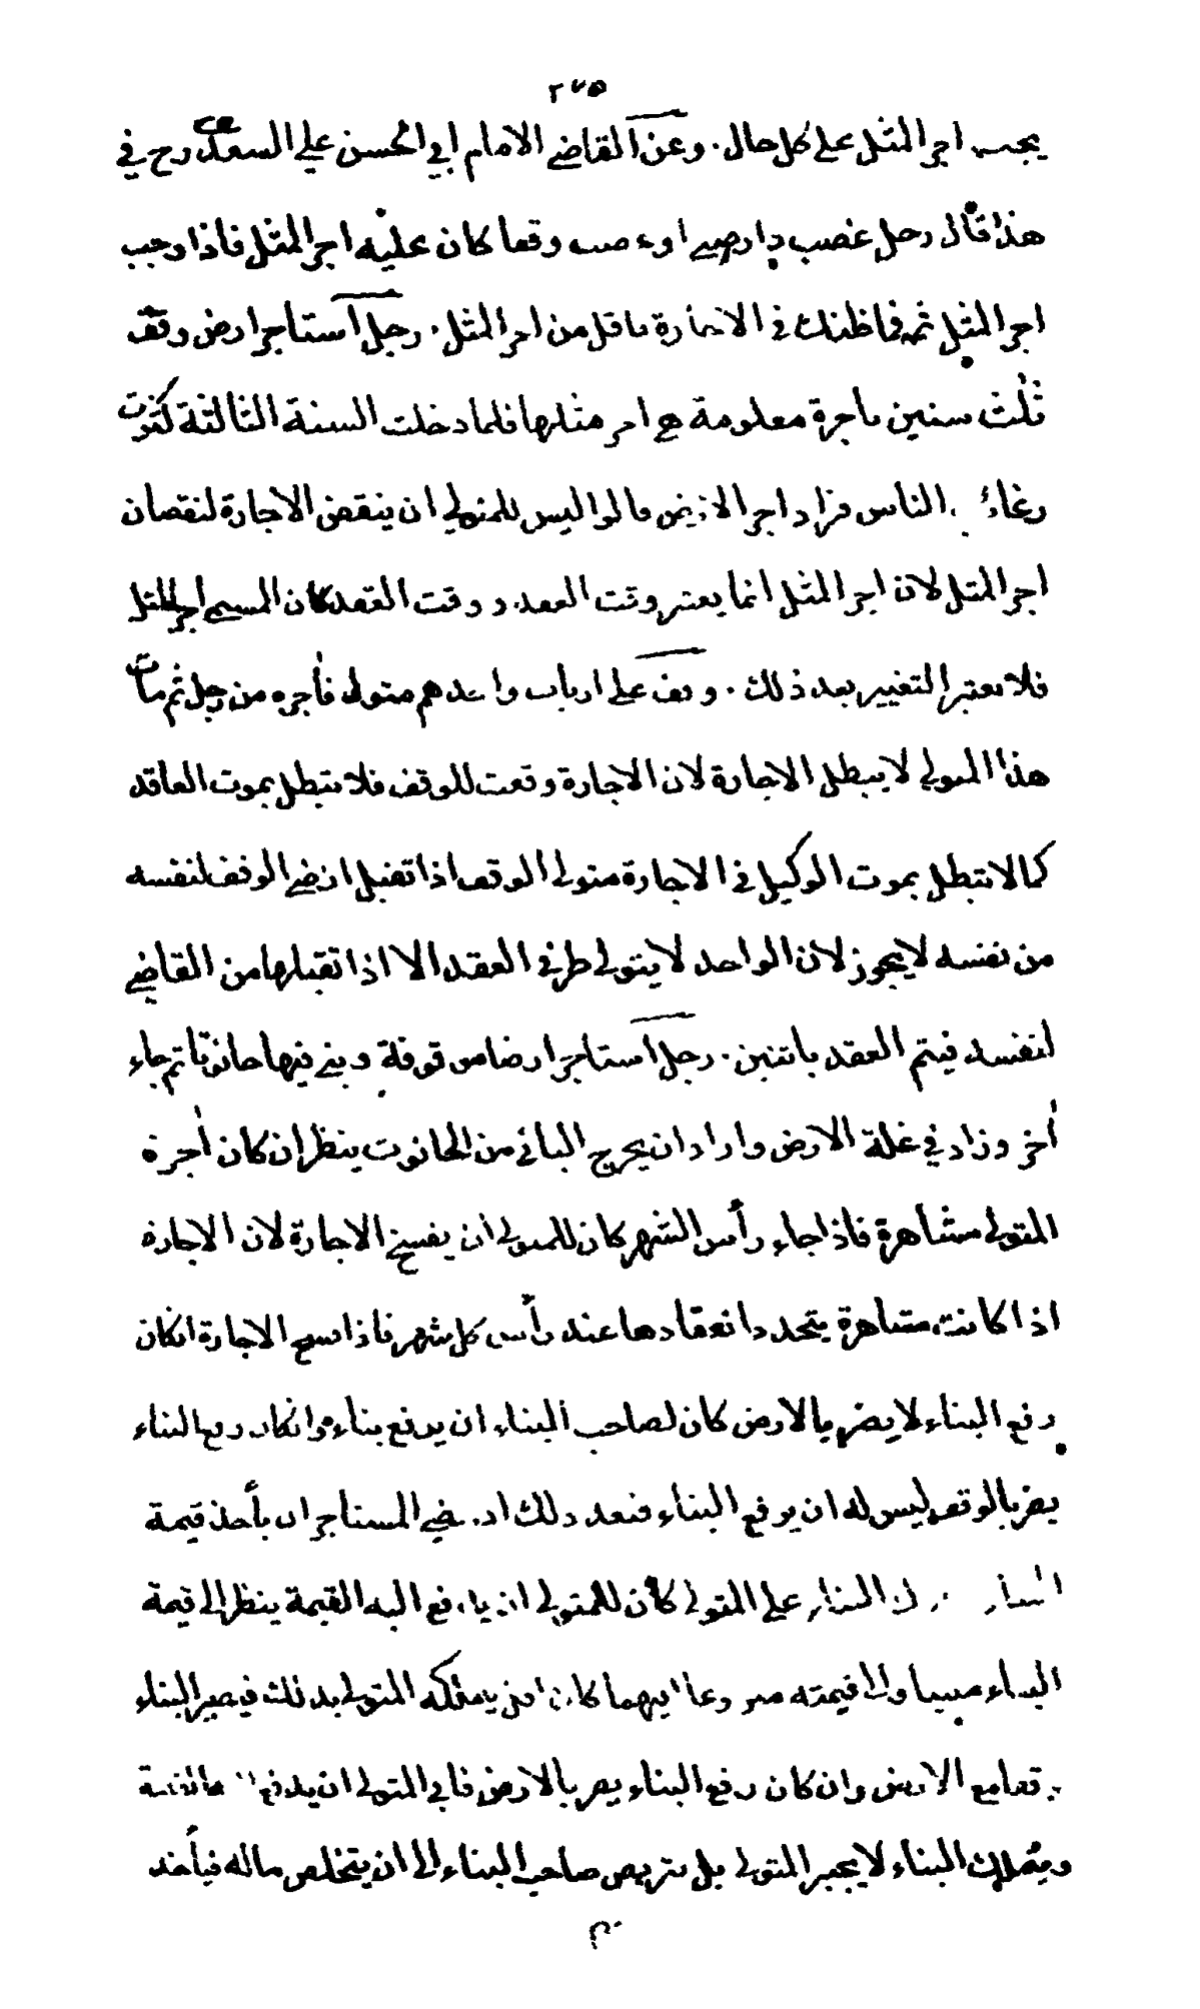 ٢٧٥
يجب اجر المثل على كل حال. وعن القاضي الامام ابي الحسن علي السغدي رح في
هذا قال رجل غصب دار صبي او غصب وقفا كان عليه اجر المثل فاذا وجب
اجر المثل ثمه فما ظنك في الاجارة باقل من اجر المثل. رجل استاجر ارض وقف
ثلث سنين باجرة معلومة هي اجر مثلها فلما دخلت السنة الثالثة كثرت
رغائب الناس فزاد اجر الارض قالوا ليس للمتولي ان ينقض الاجارة لنقصان
اجر المثل لان اجر المثل انما يعتبر وقت العقد ووقت العقد كان المسمى اجر المثل
فلا يعتبر التغيير بعد ذلك. وقف على ارباب واحدهم متولى فأجره من رجل ثم مات
هذا المتولى لا يبطل الاجارة لان الاجارة وقعت للوقف فلا تبطل بموت العاقد
كما لا تبطل بموت الوكيل في الاجارة متولى الوقف اذا تقبل ارض الوقف لنفسه
من نفسه لا يجوز لان الواحد لا يتولى طرفي العقد الا اذا تقبلها من القاضي
لنفسه فيتم العقد باثنين. رجل استاجر ارضا موقوفة وبنى فيها حانوتا ثم جاء
أخر وزاد في غلة الارض واراد ان يخرج الباني من الحانوت ينظر ان كان أجرة
المتولى مشاهرة فاذا جاء رأس الشهر كان للمتولى ان يفسخ الاجارة لان الاجارة
اذا كانت مشاهرة يتجدد انعقادها عند رأس كل شهر فاذا فسخ الاجارة ان كان
رفع البناء لا يضر بالارض كان لصاحب البناء ان يرفع بناءه وان كان رفع البناء
يضر بالوقف ليس له ان يرفع البناء فبعد ذلك ان رضي المستاجر ان يأخذ قيمة
البناء على المتولى كان للمتولى ان يدفع اليه القيمة ينظر الى قيمة
البناء مبنيا والى قيمته منزوعا ايهما كان اقل يتملكه المتولى بذلك فيصير البناء
وقفا مع الارض وان كان رفع البناء يضر بالارض فابى المتولى ان يدفع القيمة
ويتملك البناء لا يجبر المتولى بل يتربص صاحب البناء الى ان يتخلص ماله فيأخذ